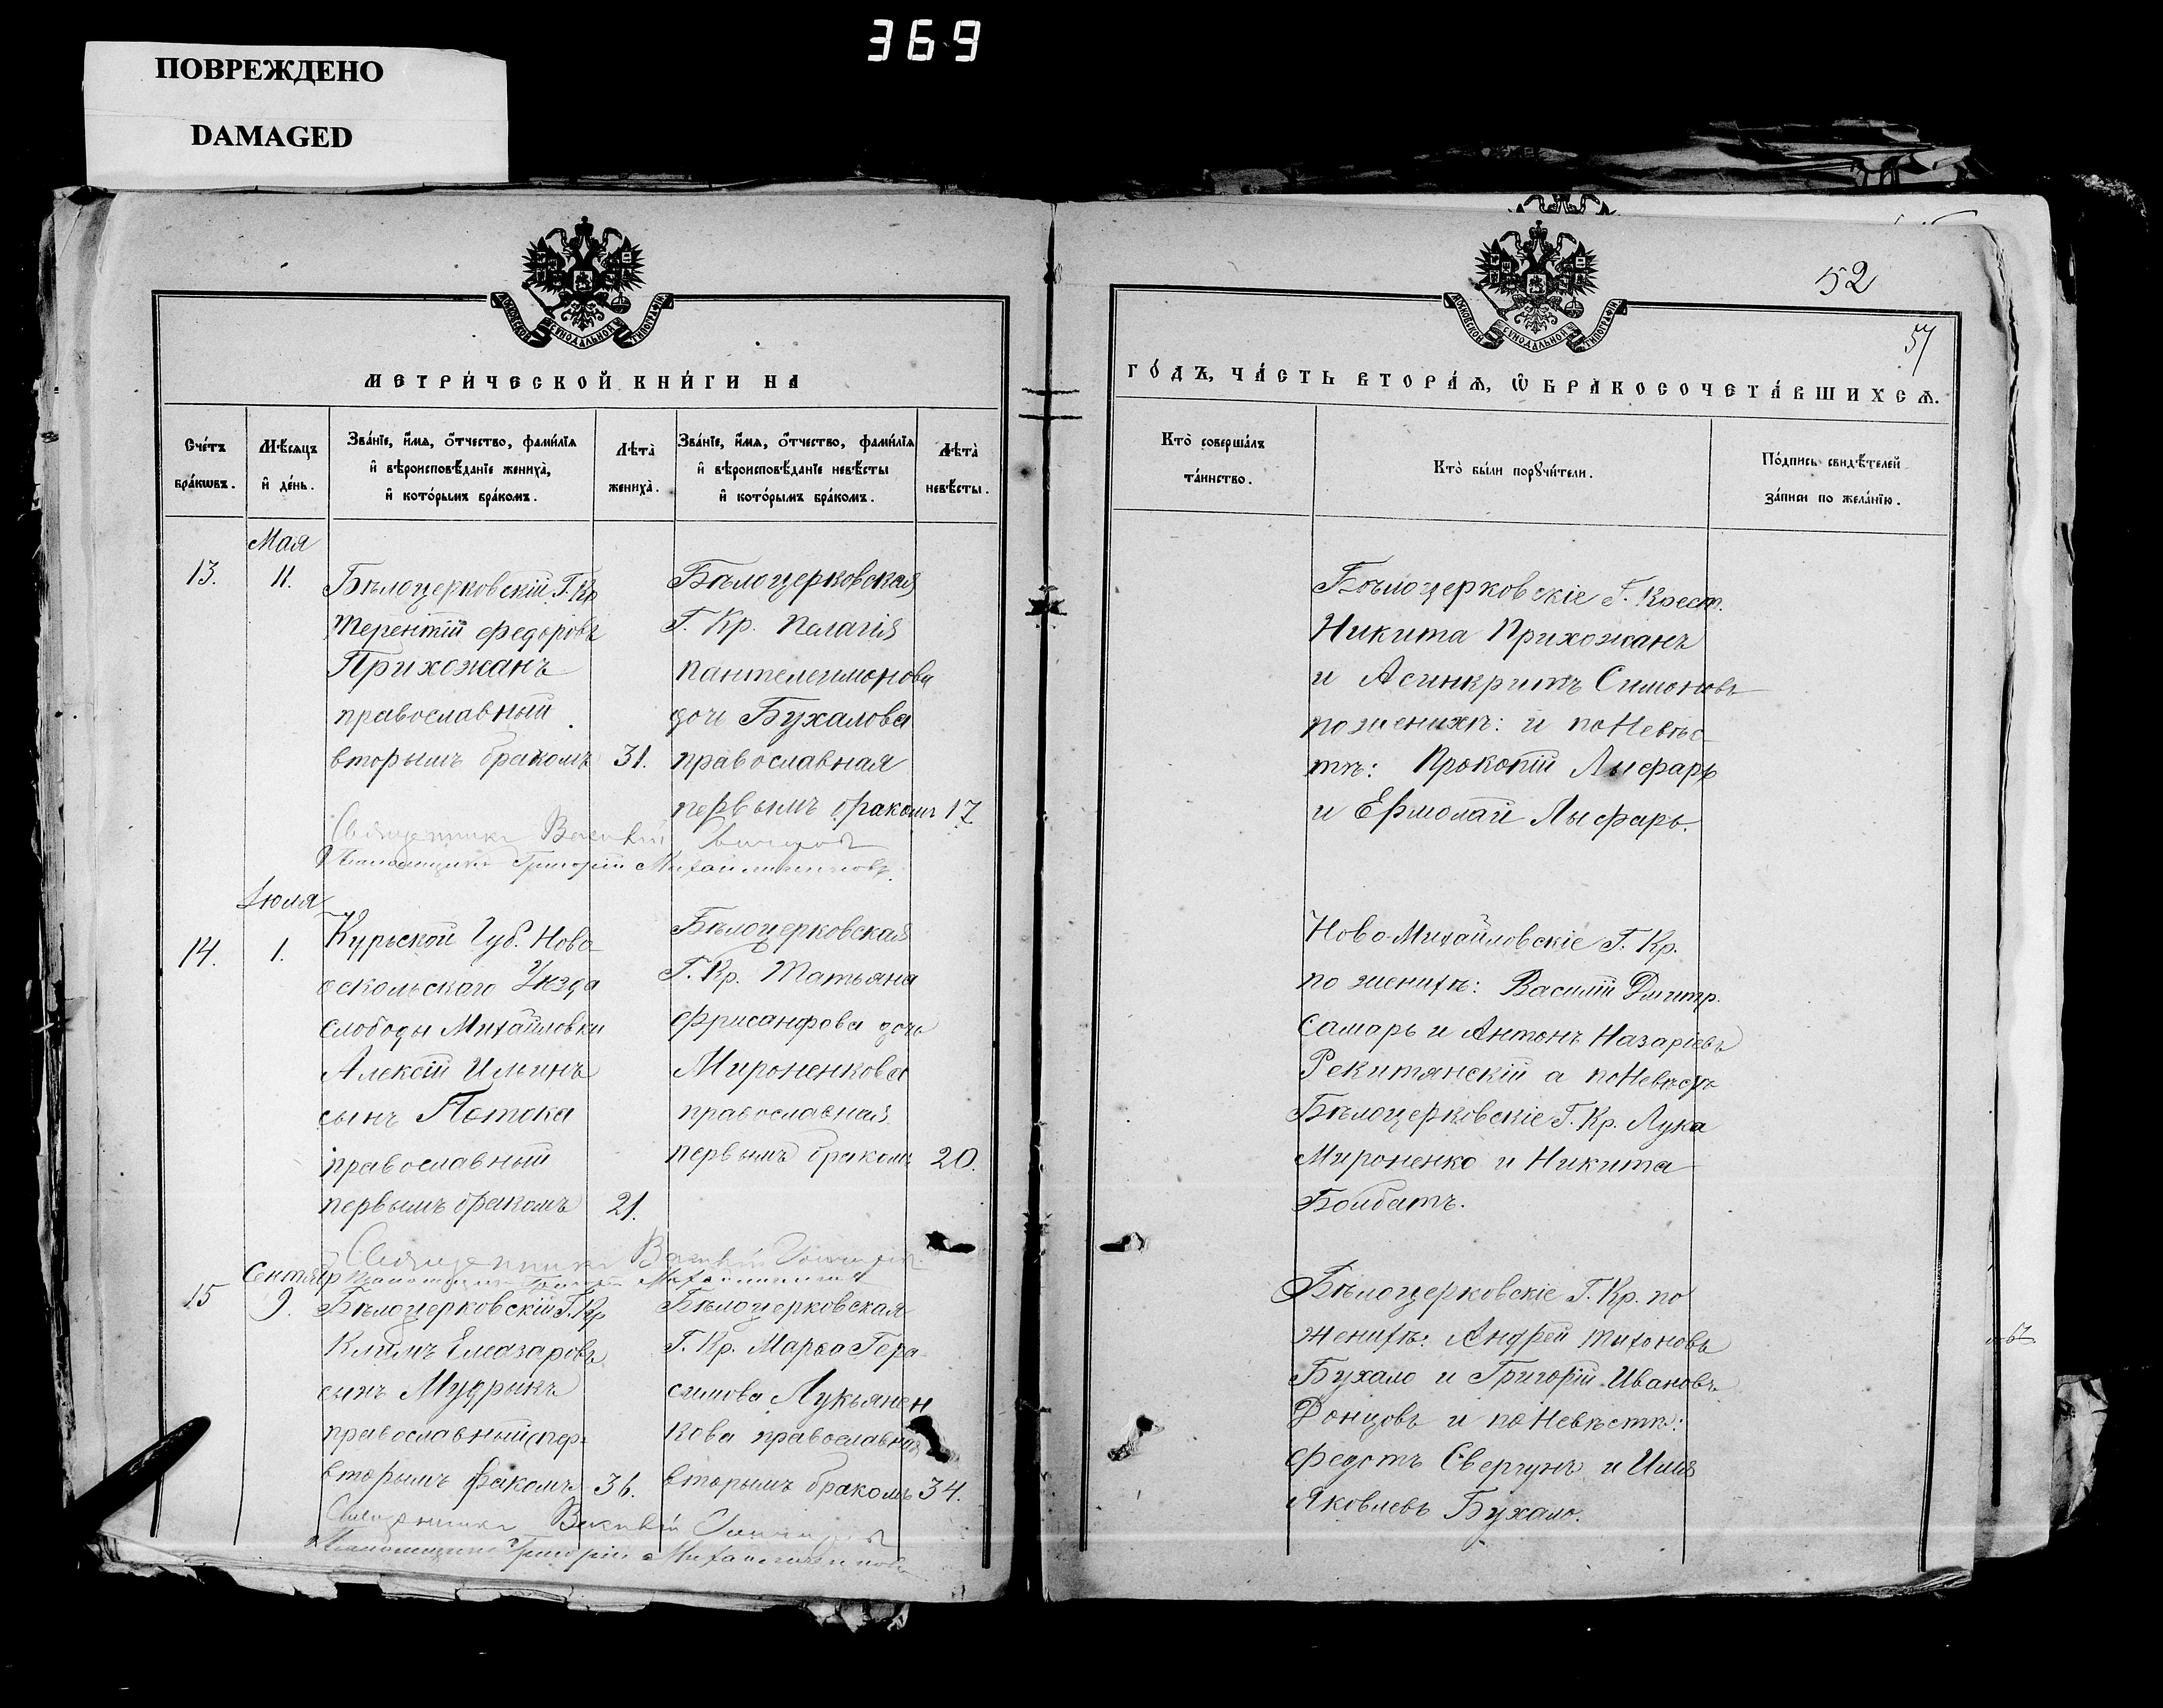 369
ПОВРЕЖДЕНО
DAMAGED
МОСКОВСКОЙ СУНОДАЛЬНОЙ ТИПОГРАФІИ
МЕТРИ́ЧЕСКОЙ КНИ́ГИ НА
Сче́тъ бра́кѡвъ.
Мѣ́сяцъ и҆ де́нь.
Зва́нїе, и҆́мѧ, о҆́тчество, фами́лїѧ
и҆ вѣроисповѣ́данїе жениха̀,
и҆ кото́рымъ бра́комъ.
Лѣта̀ жениха̀.
Зва́нїе, и҆́мѧ, о҆́тчество, фами́лїѧ
и҆ вѣроисповѣ́данїе невѣ́сты
и҆ кото́рымъ бра́комъ.
Лѣта̀ невѣ́сты.
Мая
13. 11.
Бѣлоцерковскій Г. Кр
Терентій Федоровъ
Прихожанъ
православный
вторымъ бракомъ 31.
Бѣлоцерковская
Г. Кр. Пелагія
Пантелеимонова
дочь Бухалова
православная
первымъ бракомъ 17.
Священникъ Василій
Григорій
Іюля
14. 1.
Курской Губ. Ново-
оскольскаго Уѣзда
слободы Михайловки
Алексій Ильинъ
сынъ Потока
православный
первымъ бракомъ 21.
Бѣлоцерковская
Г. Кр. Татьяна
Фрисанфова дочь
Мироненкова
православная
первымъ бракомъ 20.
Священникъ Василій
Сентябр
15 9.
Бѣлоцерковскій Г. Кр
Климъ Елеазаровъ
сынъ Мудрыкъ
православный пер-
вторымъ бракомъ 36.
Бѣлоцерковская
Г. Кр. Марѳа Гера-
симова Лукьянен
кова православная
вторымъ бракомъ 34.
Священникъ Василій
Григорій
52
57
ГО́ДЪ, ЧА́СТЬ ВТОРА́Ѧ, Ѽ БРАКОСОЧЕТА́ВШИХСѦ.
МОСКОВСКОЙ СУНОДАЛЬНОЙ ТИПОГРАФІИ
Кто̀ соверша́лъ
та́инство.
Кто̀ бы́ли порꙋчи́тели.
По́дпись свидѣ́телей
за́писи по жела́нїю.
Бѣлоцерковскіе Г. Крест.
Никита Прихожанъ
и Асинкритъ Симоновъ
по женихѣ: и по Невѣс-
тѣ: Прокопій Лысфарь
и Ермолай Лысфарь.
Ново-Михайловскіе Г. Кр.
по женихѣ: Василій Дмитр.
Самарь и Антонъ Назаріевъ
Рекитянскій а по Невѣстѣ
Бѣлоцерковскіе Г. Кр. Лука
Мироненко и Никита
Болбатъ.
Бѣлоцерковскіе Г. Кр. по
женихѣ: Андрей Тихоновъ
Бухало и Григорій Ивановъ
Донцовъ и по Невѣстѣ:
Федотъ Свергунъ и Илія
Яковлевъ Бухало.